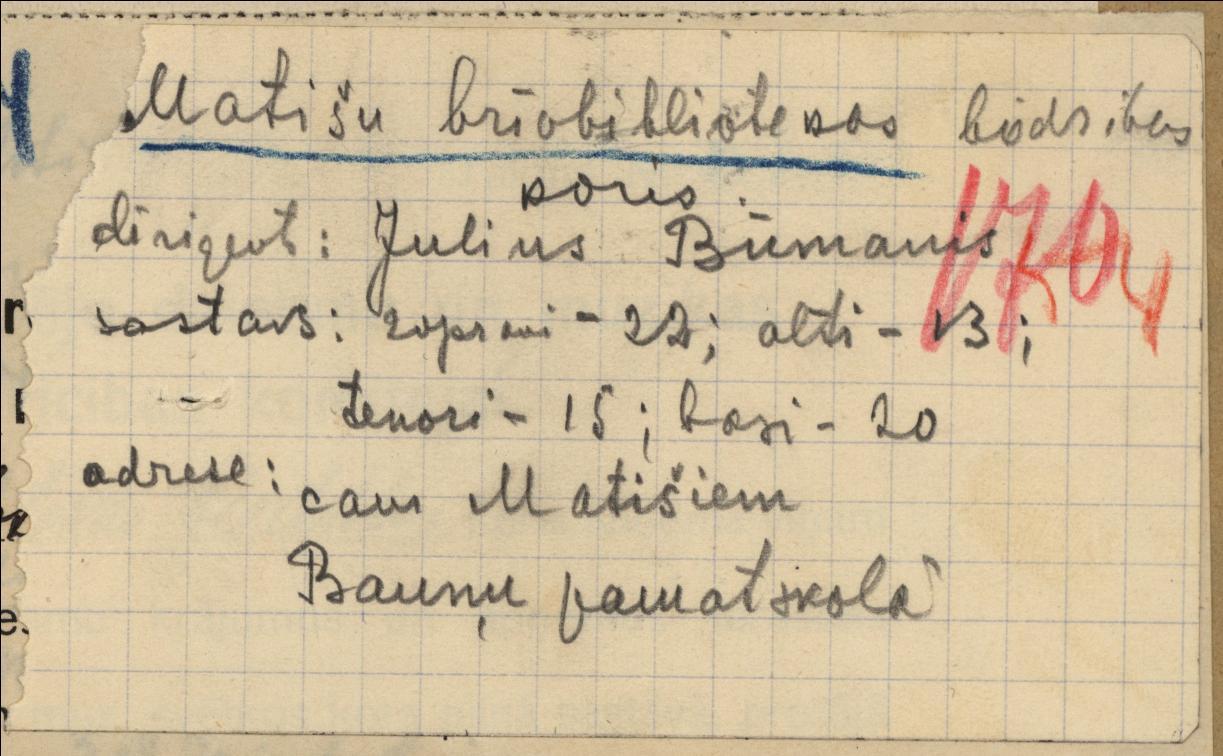 Matišu brīvbibliotekas biedrības
koris.
diriģents: Julius Būmanis
1704
sastavs: soprani - 22; alti - 13;
tenori - 15; basi - 20
adrese:
caur Matišiem
Bauņu pamatskolā